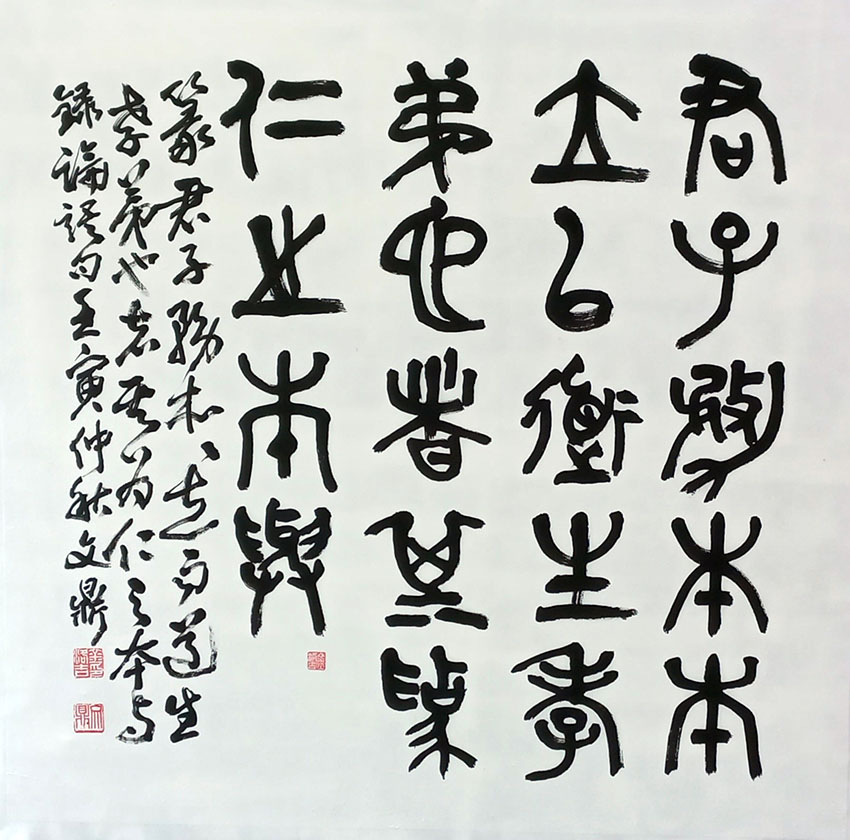 君子務本本
立而道生孝
弟也者其為
仁之本與
篆君子務本本立而道生
孝弟也者其為仁之本与
錄論語句壬寅仲秋文鼎